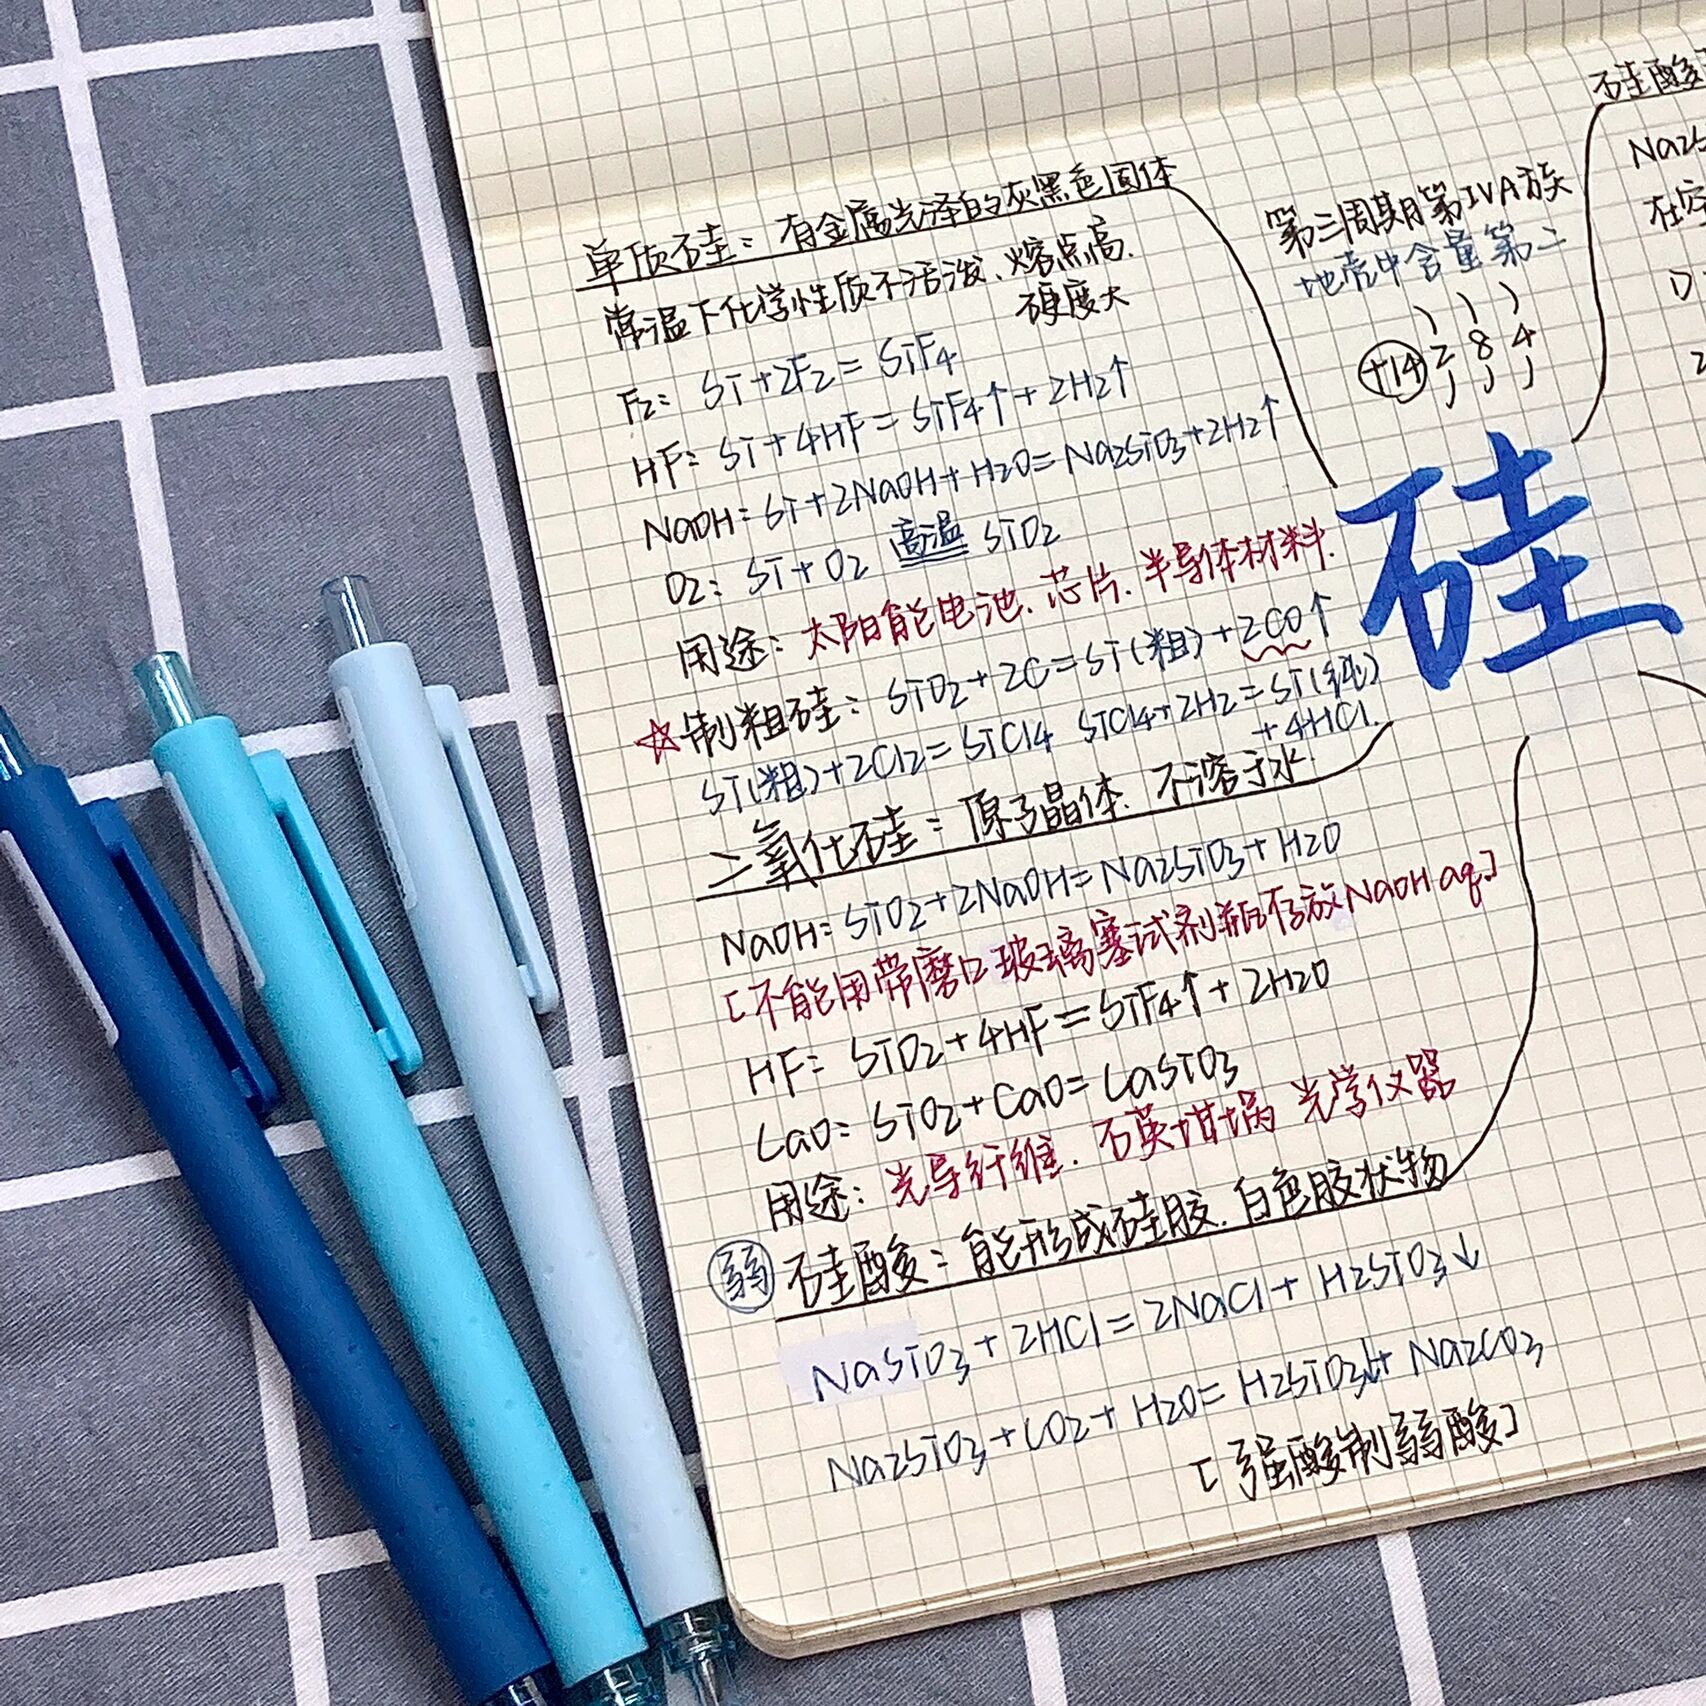 单质硅：有金属光泽的灰黑色固体
常温下化学性质不活泼、熔点高.
硬度大
F2: Si+2F2=SiF4
HF: Si+4HF=SiF4↑+2H2↑
NaOH: Si+2NaOH+H2O=Na2SiO3+2H2↑
O2: Si+O2 高温 SiO2
用途：太阳能电池.芯片.半导体材料.
☆制粗硅：SiO2+2C=Si(粗)+2CO↑
Si(粗)+2Cl2=SiCl4 SiCl4+2H2=Si(纯)
+4HCl.
二氧化硅：原子晶体.不溶于水.
NaOH: SiO2+2NaOH=Na2SiO3+H2O
[不能用带磨口玻璃塞试剂瓶存放NaOH aq.]
HF: SiO2+4HF=SiF4↑+2H2O
CaO: SiO2+CaO=CaSiO3
用途：光导纤维.石英坩埚 光学仪器
弱 硅酸：能形成硅胶.白色胶状物
NaSiO3+2HCl=2NaCl+H2SiO3↓
Na2SiO3+CO2+H2O=H2SiO3↓+Na2CO3
[强酸制弱酸]
第三周期第IVA族
地壳中含量第二
+14 2 8 4
硅
硅酸